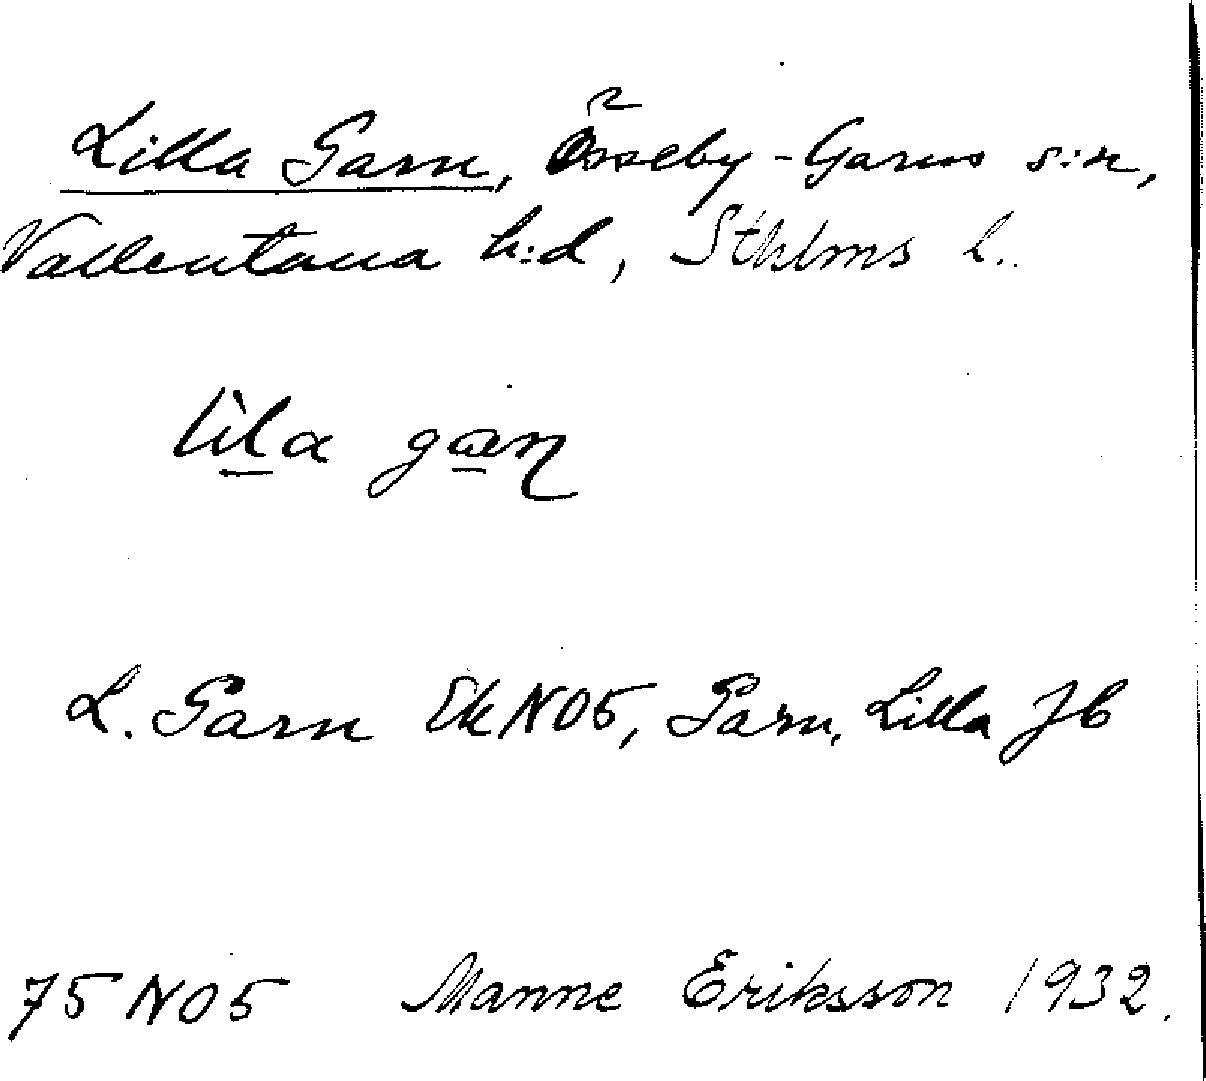 Lilla Garn, Össeby-Garns s:n,
Vallentuna h:d, Sthlms l.
L. Garn Ek NO5, Garn, Lilla Jb
75 NO5 Manne Eriksson 1932.